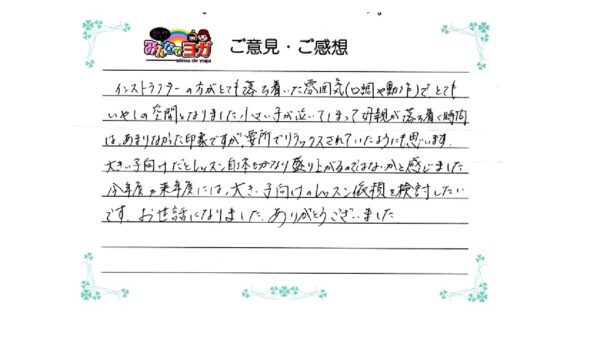 みんなでヨガ
minna de yoga
ご意見・ご感想
インストラクターの方がとても落ち着いた雰囲気(口調や動作)でとても
いやしの空間となりました。小さい子が泣いてしまって母親が落ち着く時間
は、あまりなかった印象ですが要所でリラックスされていたようにも思います。
大きい子向けだとレッスン自体もかなり盛り上がるのではないかと感じました
今年度か来年度には、大きい子向けのレッスン依頼を検討したい
です。お世話になりました。ありがとうございました